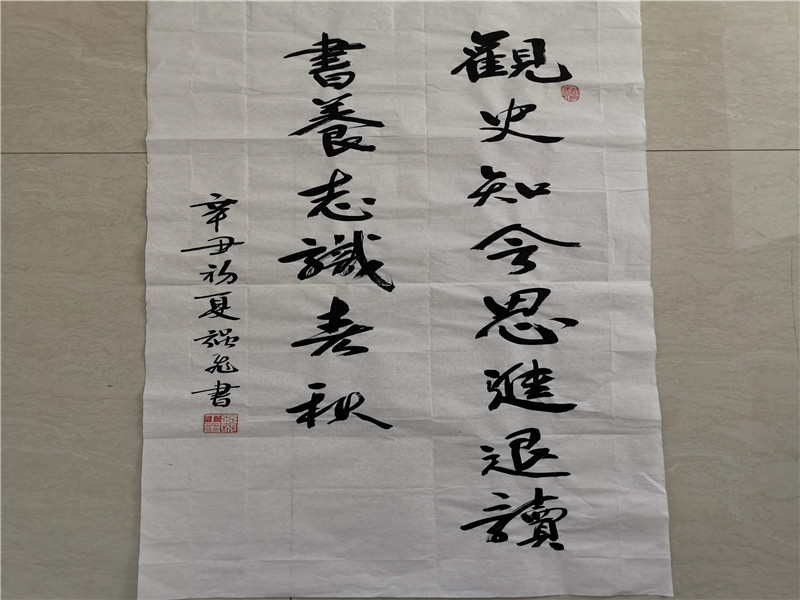 觀史知今思進退讀
書養志識春秋
辛丑初夏 飛書